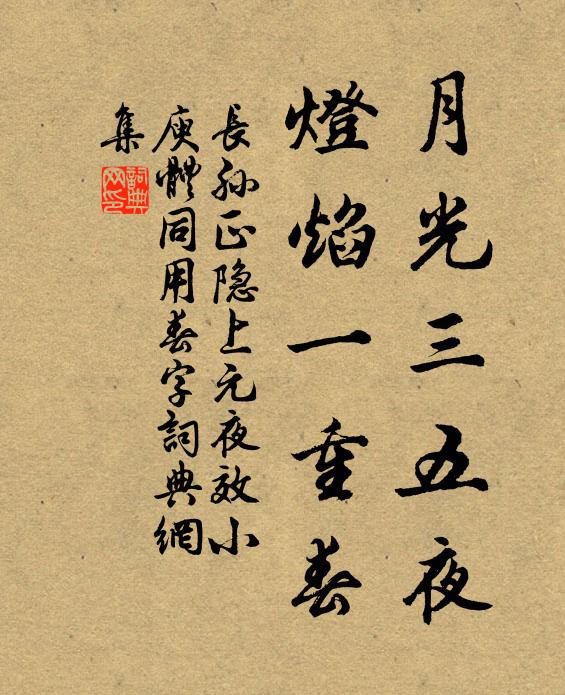 月光三五夜
燈焰一重春
長孙正隐上元夜效小
庾體同用春字詞典網
集
詞典
网印